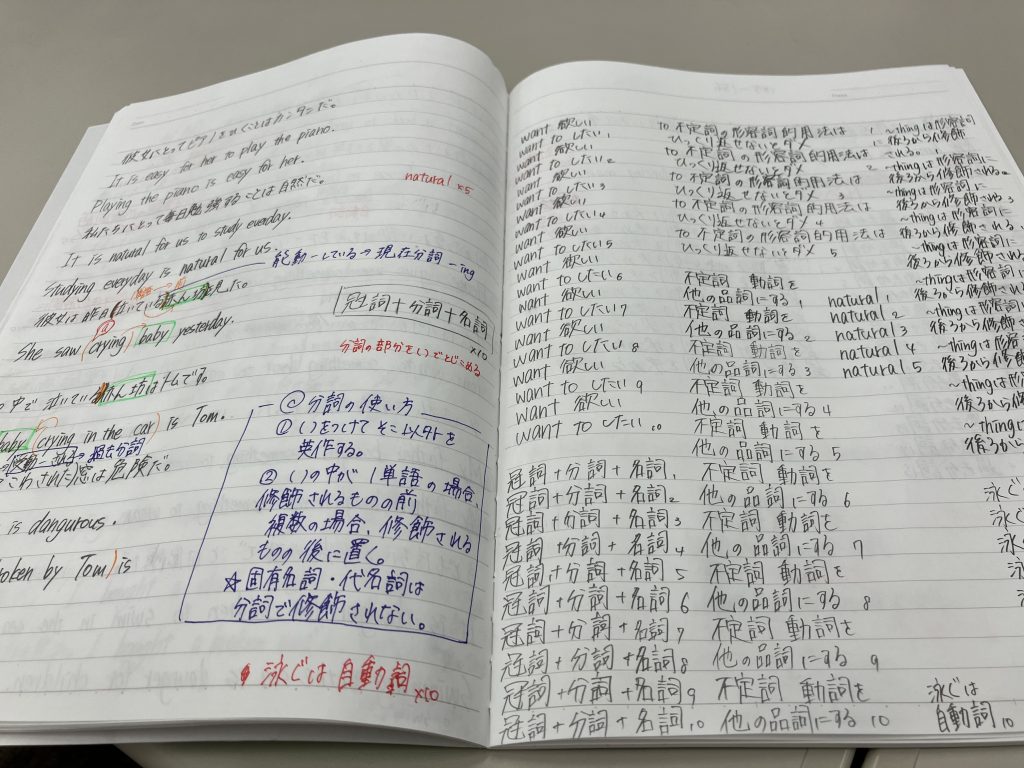 彼女にとってピアノをひくことはカンタンだ。
It is easy for her to play the piano.
Playing the piano is easy for her.
natural ×5
私たちにとって毎日勉強することは自然だ。
It is natural for us to study eveday.
Studying everyday is natural for us.
能動ーしている→現在分詞 -ing
彼女は昨日泣いている赤ん坊を見た。
冠詞+分詞+名詞
×10
She saw (crying) baby yesterday.
分詞の部分をいでとじこめる
中で泣いている赤ん坊はトムです。
baby (crying in the car) is Tom.
過去分詞
こわされた窓は危険だ。
is dangurous.
oken by Tom) is
分詞の使い方
① いをつけてそこ以外を
英作する。
② いの中が1単語の場合、
修飾されるものの前
複数の場合、修飾される
ものの後に置く。
☆固有名詞・代名詞は
分詞で修飾されない。
泳ぐは自動詞 ×10
want 欲しい
want to したい 1
want 欲しい
want to したい 2
want 欲しい
want to したい 3
want 欲しい
want to したい 4
want 欲しい
want to したい 5
want 欲しい
want to したい 6
want 欲しい
want to したい 7
want 欲しい
want to したい 8
want 欲しい
want to したい 9
want 欲しい
want to したい 10
冠詞+分詞+名詞 1
冠詞+分詞+名詞 2
冠詞+分詞+名詞 3
冠詞+分詞+名詞 4
冠詞+分詞+名詞 5
冠詞+分詞+名詞 6
冠詞+分詞+名詞 7
冠詞+分詞+名詞 8
冠詞+分詞+名詞 9
冠詞+分詞+名詞 10
to 不定詞の形容詞的用法は
ひっくり返せないとダメ 1
to 不定詞の形容詞的用法は
ひっくり返せないとダメ 2
to 不定詞の形容詞的用法は
ひっくり返せないとダメ 3
to 不定詞の形容詞的用法は
ひっくり返せないとダメ 4
to 不定詞の形容詞的用法は
ひっくり返せないとダメ 5
不定詞 動詞を
他の品詞にする 1
不定詞 動詞を
他の品詞にする 2
不定詞 動詞を
他の品詞にする 3
不定詞 動詞を
他の品詞にする 4
不定詞 動詞を
他の品詞にする 5
不定詞 動詞を
他の品詞にする 6
不定詞 動詞を
他の品詞にする 7
不定詞 動詞を
他の品詞にする 8
不定詞 動詞を
他の品詞にする 9
不定詞 動詞を
他の品詞にする 10
natural 1
natural 2
natural 3
natural 4
natural 5
~thingは形容詞に
後ろから修飾
される。
~thingは形容詞に
後ろから修飾される
~thingは形容詞に
後ろから修飾される 3
~thingは形容詞に
後ろから修飾される
~thingは形容詞に
後ろから修飾される
~thingは形容詞に
後ろから修飾
~thingは形容詞
後ろから修飾
~thingは形容
後ろから修飾
~thingは形容
後ろから修
~thingに
後ろから
泳ぐ
泳ぐは
自動詞 10